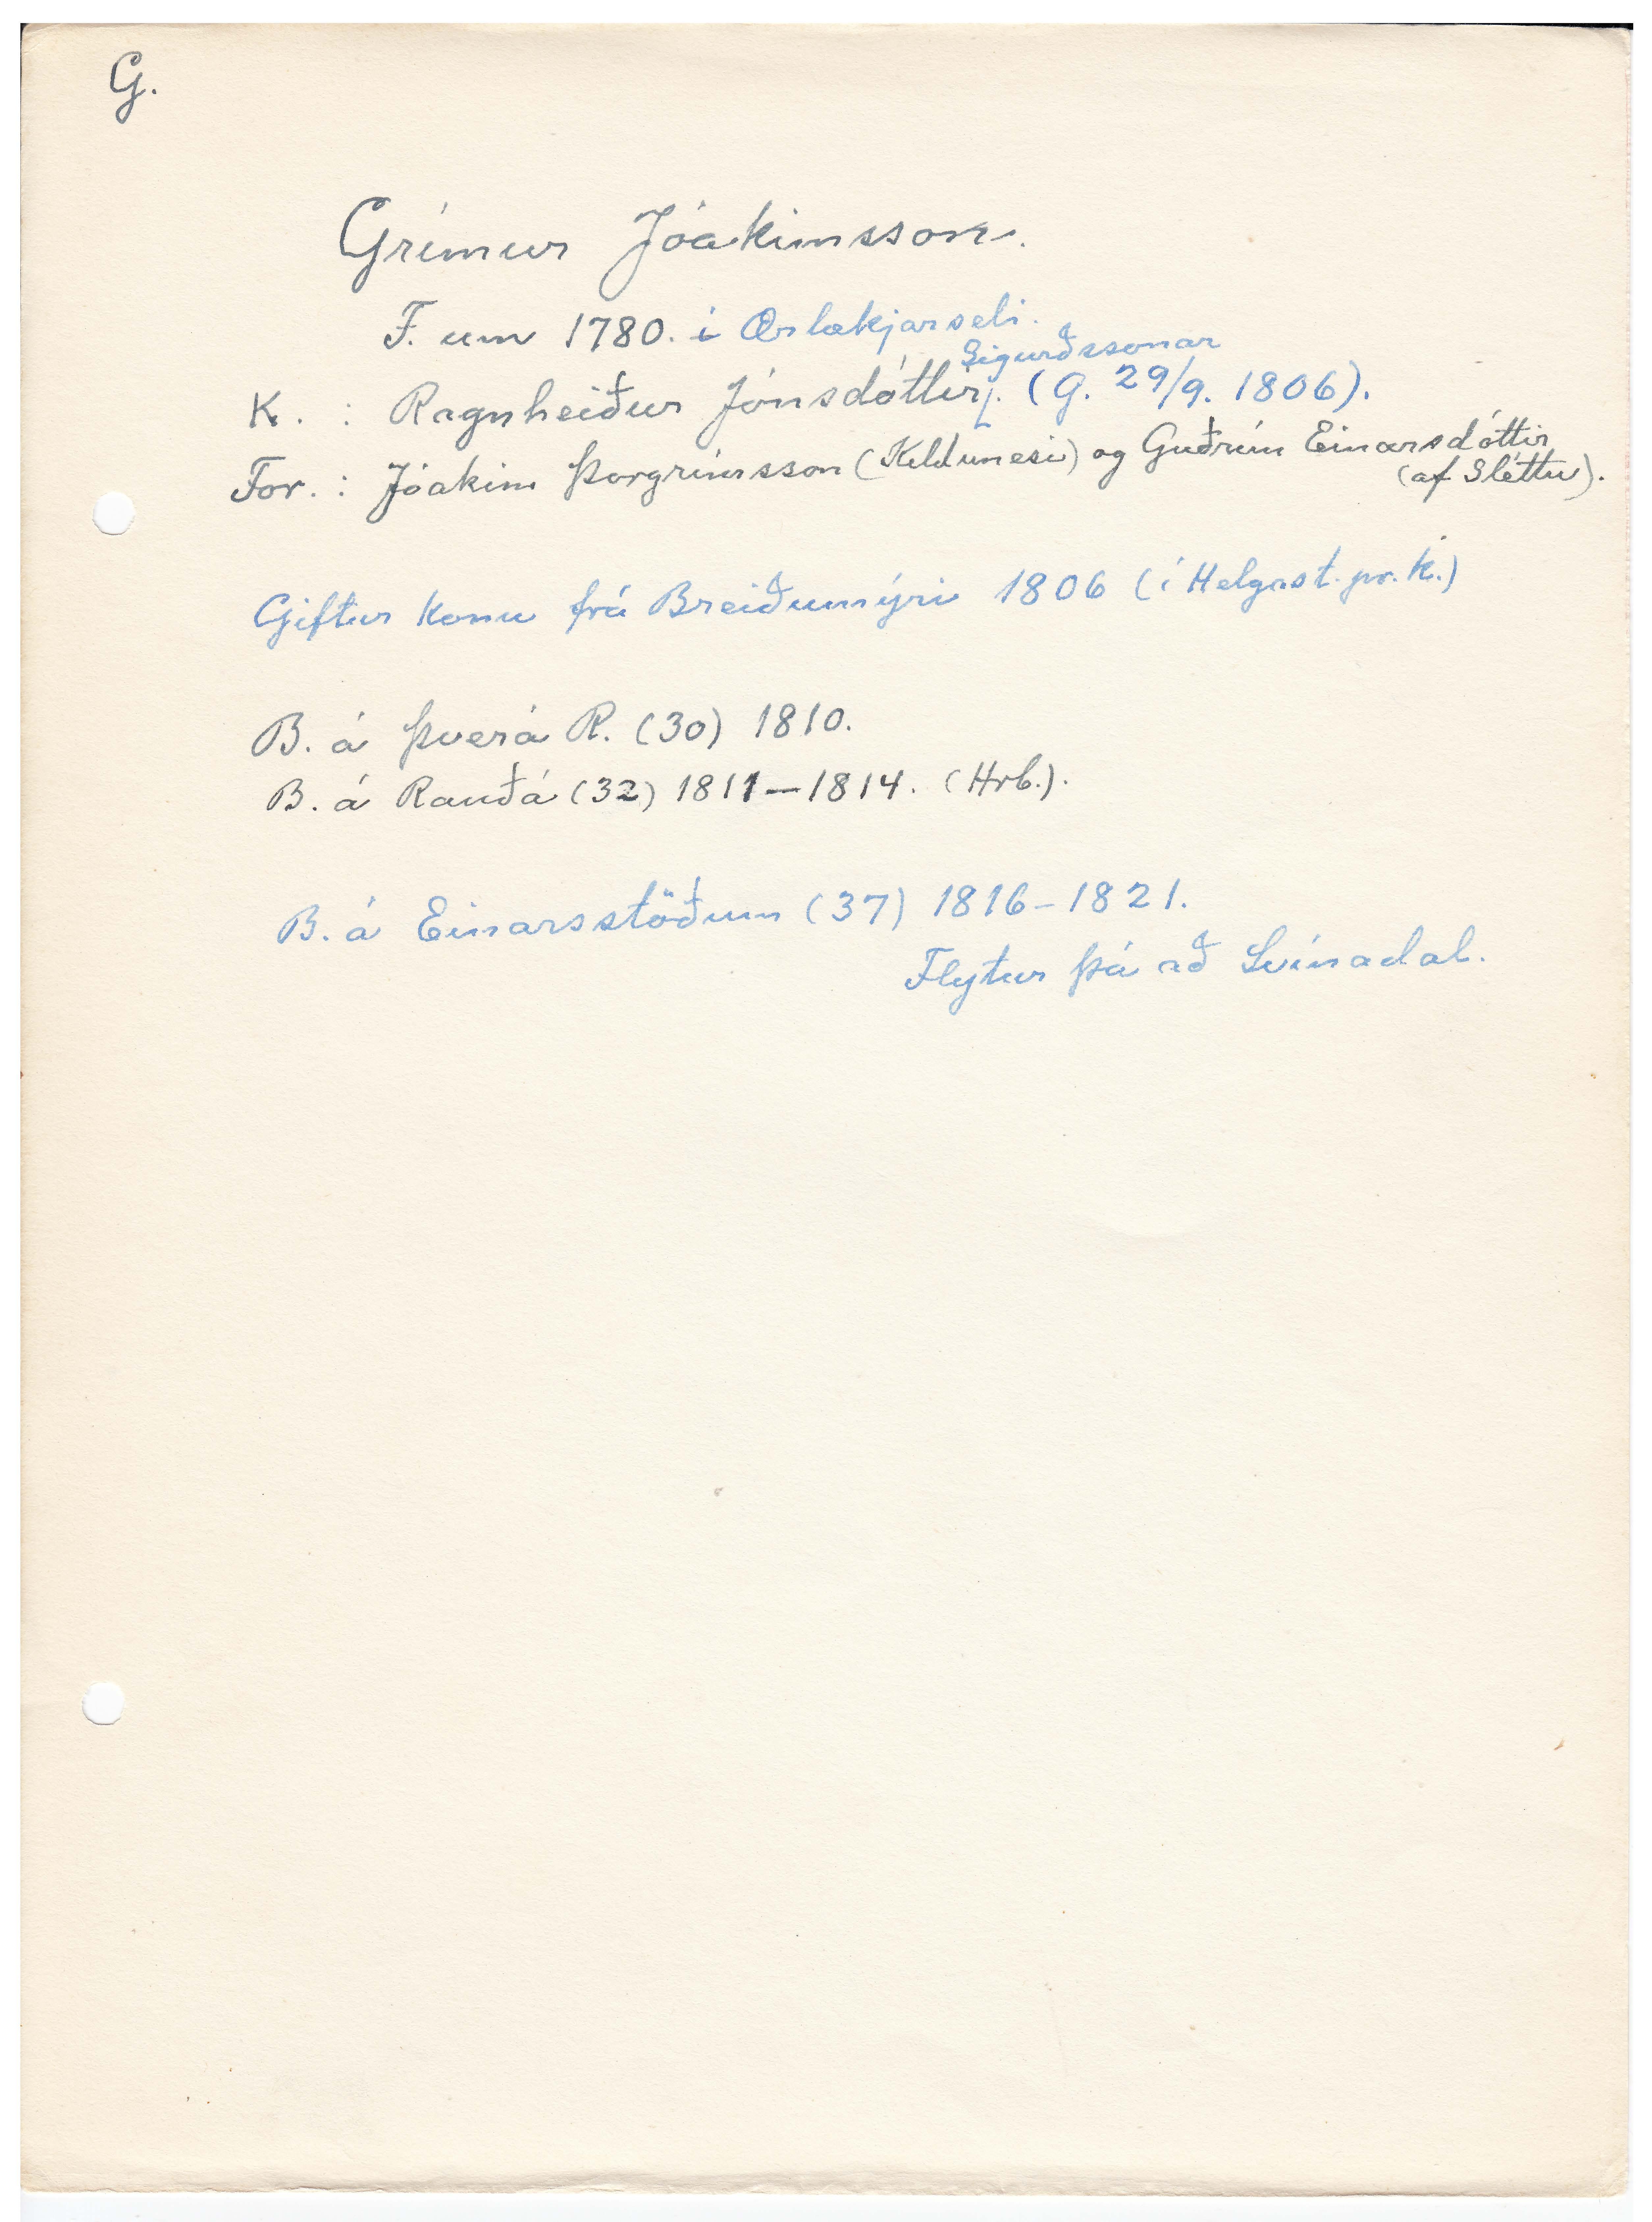 G.
Grímur Jóakimsson.
F. um 1780. í Ærlækjarseli.
Sigurðssonar
K. : Ragnheiður Jónsdóttir. (G. 29/9. 1806).
For. : Jóakim Þorgrímsson (Keldunesi) og Guðrún Einarsdóttir
(af Sléttu).
Giftur konu frá Breiðumýri 1806 (í Helgast. pr. k.)
B. á Þverá R. (30) 1810.
B. á Rauðá (32) 1811–1814. (Hrb.).
B. á Einarsstöðum (37) 1816–1821.
Flytur þá að Svínadal.